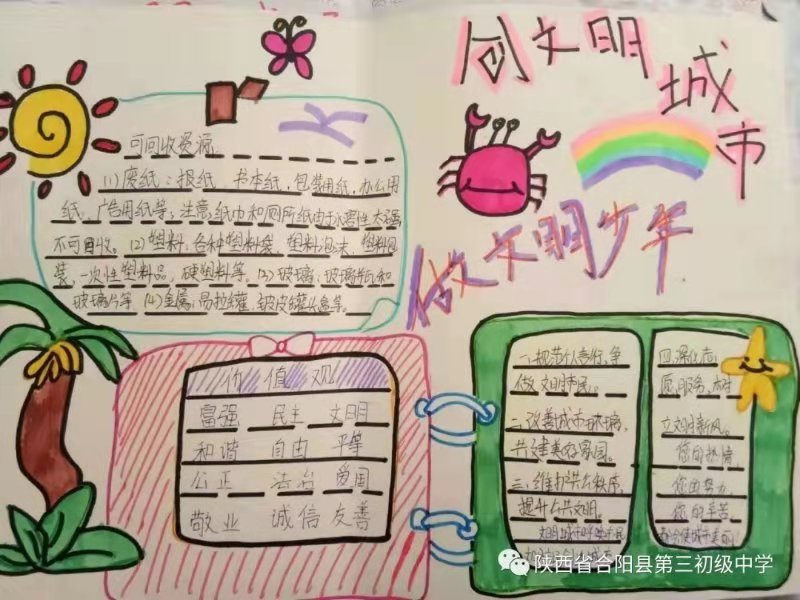 创文明
城
市
做文明少年
可回收资源
(1)废纸：报纸、书本纸、包装用纸、办公用
纸、广告用纸等，注意纸巾和厕所纸由于水溶性太强
不可回收。(2)塑料，各种塑料袋、塑料泡沫、塑料包
装、一次性塑料品，硬塑料等。(3)玻璃：玻璃瓶和
玻璃片等(4)金属，易拉罐，铍皮罐头盒等。
价值观
富强 民主 文明
和谐 自由 平等
公正 法治 爱国
敬业 诚信 友善
一.规范个人言行,争
做文明市民。
二.改善城市环境,
共建美好家园。
三.维护公共秩序,
提升公共文明。
四.深化志
愿服务,树
立文明新风。
您的热情
您的努力
您的辛苦
陕西省合阳县第三初级中学